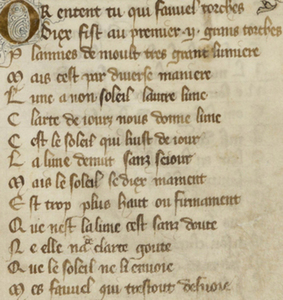 Or entent tu qui fauvel torches
Diex fist au premier .ij. grans torches
Plainnes de moult tres grant lumiere
Mais cest par diverse maniere
Lune a non soleil lautre lune
Clarte de iours nous donne lune
Cest le soleil qui luist de iour
La lune de nuit sanz seiour
Mais le soleil se diex mament
Est trop plus haut ou firmament
Que nest la lune cest sanz doute
Ne elle na clarte goute
Que le soleil ne li envoie
Mes fauvel qui trestout desvoie